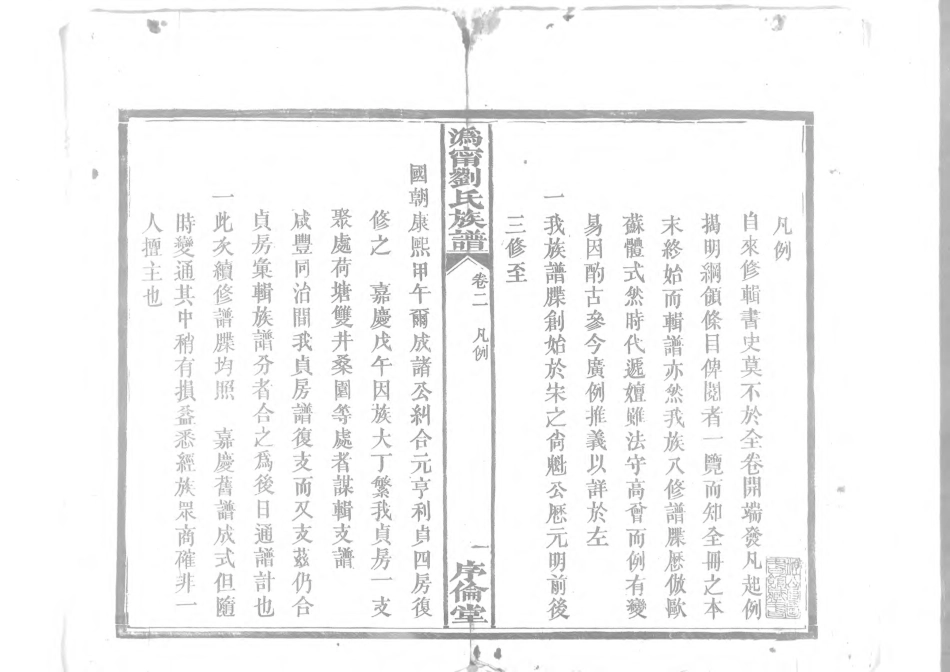 凡例
自來修輯書史莫不於全卷開端發凡起例
揭明綱領條目俾閱者一覽而知全冊之本
末終始而輯譜亦然我族八修譜牒歷倣歐
蘇體式然時代遞嬗雖法守高曾而例有變
易因酌古參今廣例推義以詳於左
一我族譜牒創始於宋之尙魁公歷元明前後
三修至
瀉甯劉氏族譜
卷二
凡例
一
序倫堂
國朝康熙甲午爾成諸公糾合元亨利貞四房復
修之 嘉慶戊午因族大丁繁我貞房一支
聚處荷塘雙井桑園等處者謀輯支譜
咸豐同治間我貞房譜復支而又支茲仍合
貞房彙輯族譜分者合之爲後日通譜計也
一此次續修譜牒均照 嘉慶舊譜成式但隨
時變通其中稍有損益悉經族眾商確非一
人擅主也